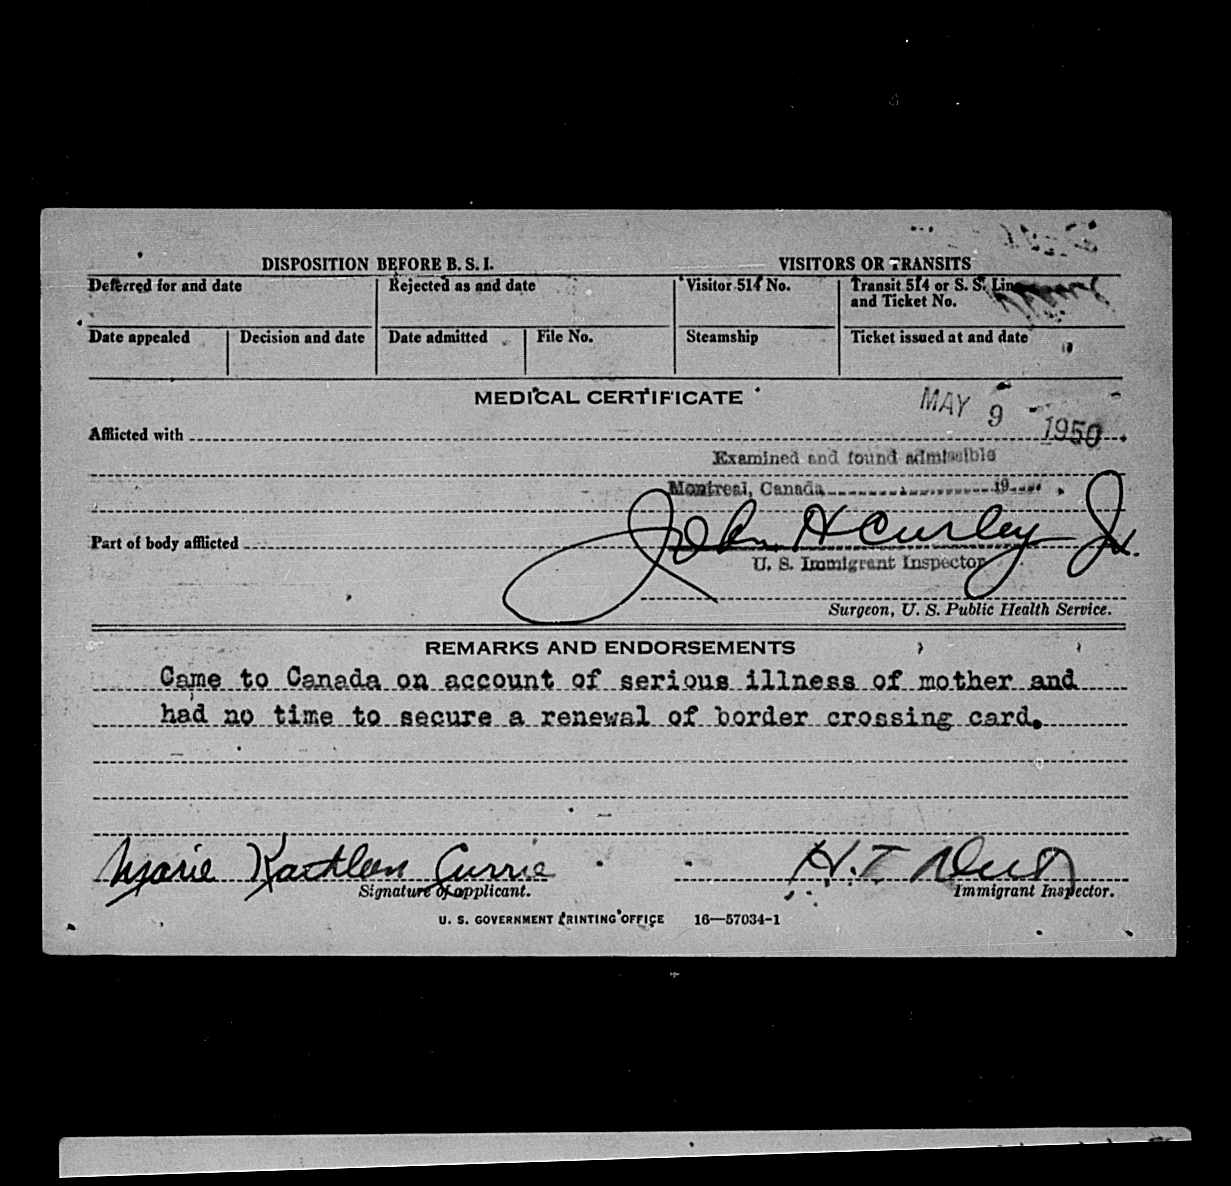 DISPOSITION BEFORE B. S. I. VISITORS OR TRANSITS
Deferred for and date Rejected as and date Visitor 514 No. Transit 514 or S. S. Line and Ticket No.
Date appealed Decision and date Date admitted File No. Steamship Ticket issued at and date
MEDICAL CERTIFICATE
MAY 9 1950
Afflicted with
Examined and found admissible
Montreal, Canada 19
Part of body afflicted
John H Curley Jr.
U. S. Immigrant Inspector
Surgeon, U. S. Public Health Service.
REMARKS AND ENDORSEMENTS
Came to Canada on account of serious illness of mother and
had no time to secure a renewal of border crossing card.
Marie Kathleen Currie H. T.
Signature of applicant. Immigrant Inspector.
U. S. GOVERNMENT PRINTING OFFICE 16—57034-1